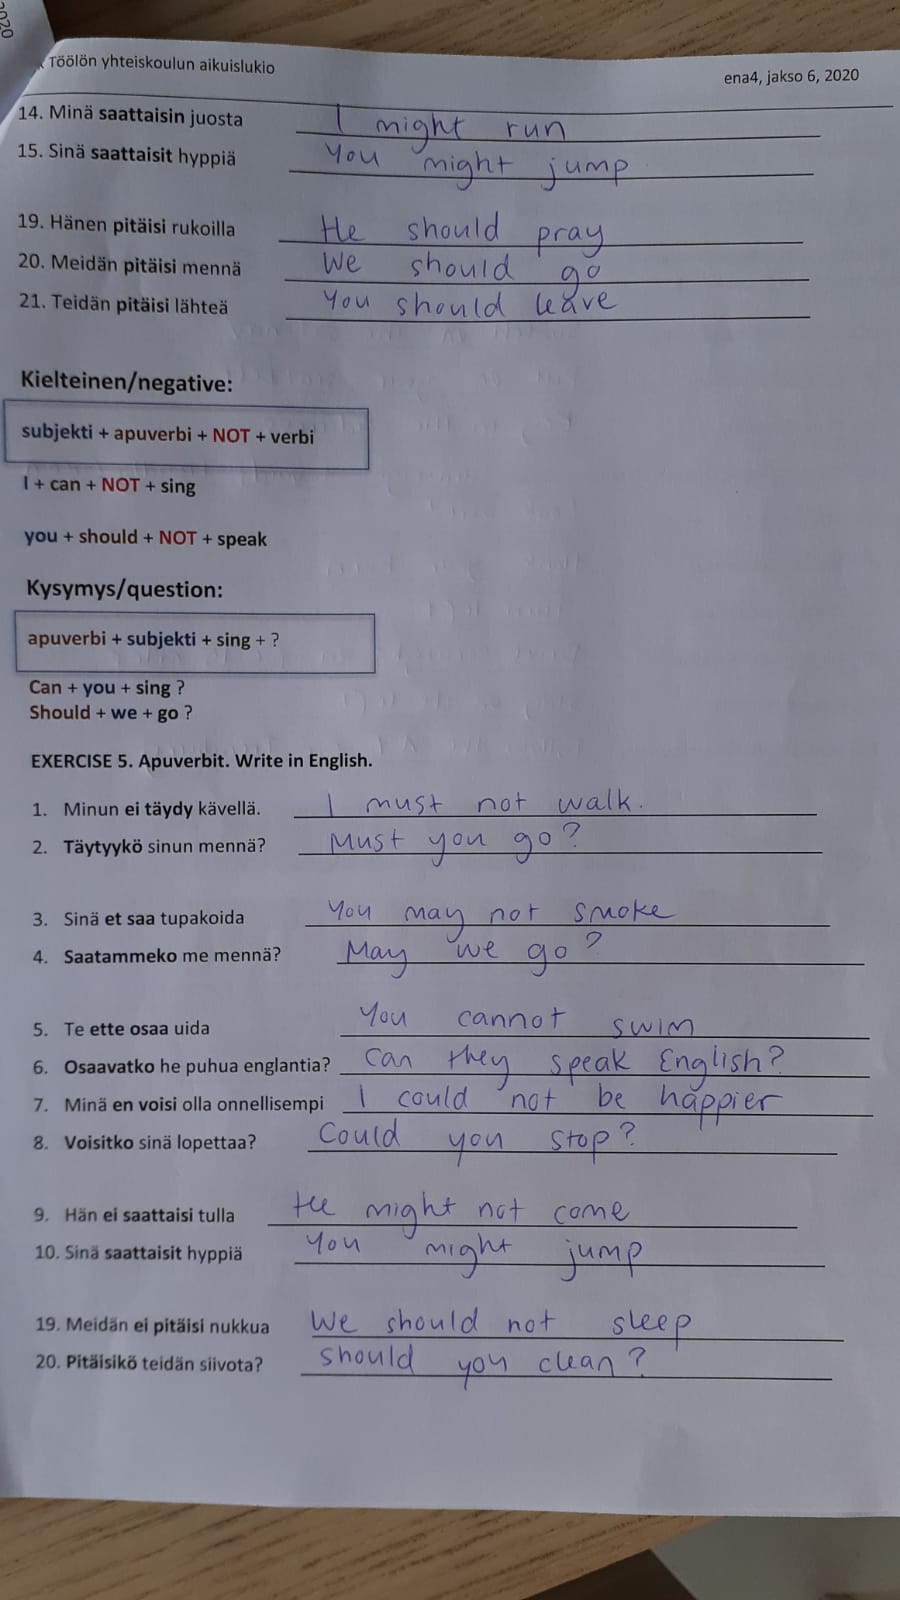 2020
Töölön yhteiskoulun aikuislukio
ena4, jakso 6, 2020
14. Minä saattaisin juosta I might run
15. Sinä saattaisit hyppiä You might jump
19. Hänen pitäisi rukoilla He should pray
20. Meidän pitäisi mennä We should go
21. Teidän pitäisi lähteä You should leave
Kielteinen/negative:
subjekti + apuverbi + NOT + verbi
I + can + NOT + sing
you + should + NOT + speak
Kysymys/question:
apuverbi + subjekti + sing + ?
Can + you + sing ?
Should + we + go ?
EXERCISE 5. Apuverbit. Write in English.
1. Minun ei täydy kävellä. I must not walk.
2. Täytyykö sinun mennä? Must you go?
3. Sinä et saa tupakoida You may not smoke
4. Saatammeko me mennä? May we go?
5. Te ette osaa uida You cannot swim
6. Osaavatko he puhua englantia? Can they speak English?
7. Minä en voisi olla onnellisempi I could not be happier
8. Voisitko sinä lopettaa? Could you stop?
9. Hän ei saattaisi tulla He might not come
10. Sinä saattaisit hyppiä You might jump
19. Meidän ei pitäisi nukkua We should not sleep
20. Pitäisikö teidän siivota? Should you clean?